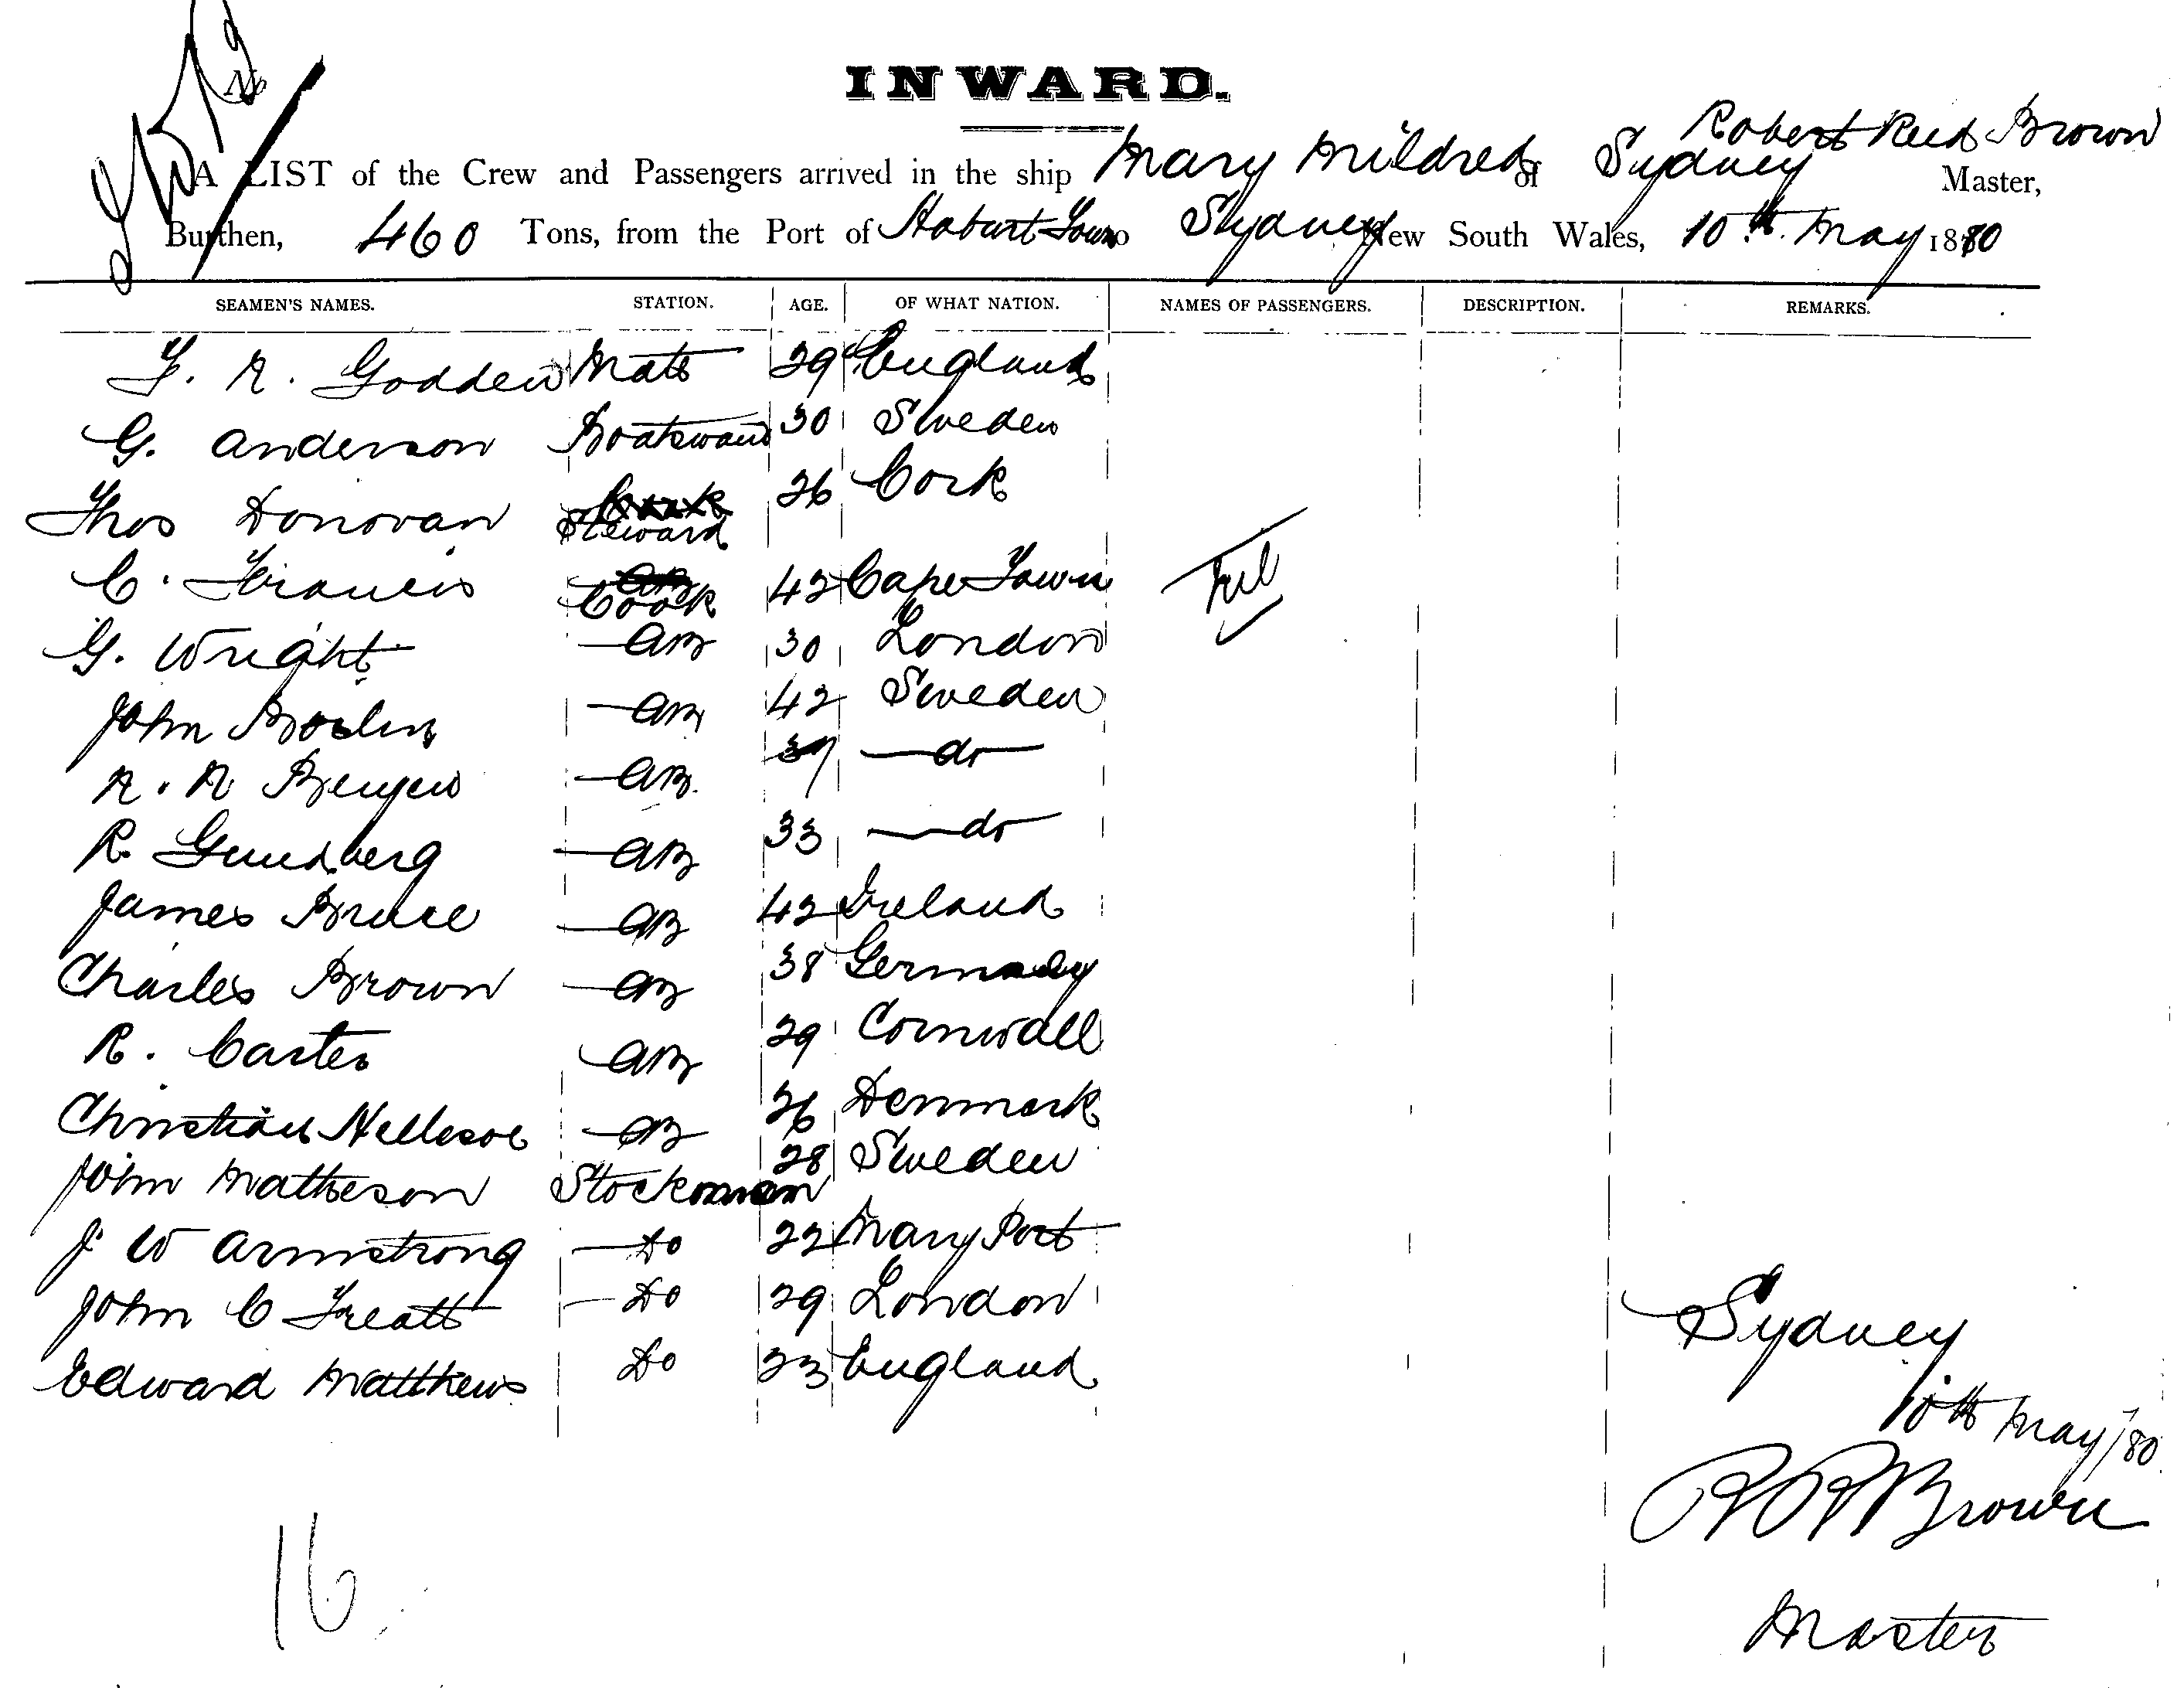 No
INWARD.
Robert Reid Brown
A LIST of the Crew and Passengers arrived in the ship Mary Mildred of Sydney Master,
Burthen, 460 Tons, from the Port of Hobart Town to Sydney New South Wales, 10th May 1880
SEAMEN'S NAMES. STATION. AGE. OF WHAT NATION. NAMES OF PASSENGERS. DESCRIPTION. REMARKS.
F. R. Godden Mate 29 England
G. Anderson Boatswain 30 Sweden
Thos Donovan Steward 26 Cork
C. Francis Cook 42 Cape Town Nil
G. Wright AB 30 London
John AB 42 Sweden
R. R AB 37 do
R. Grundberg AB 33 do
James Bruce AB 42 Ireland
Charles Brown AB 38 Germany
R. Carter AB 29 Cornwall
Christian AB 26 Denmark
John Matheson Stockman 28 Sweden
J W Armstrong Do 22 Mary Port
John C Treatt Do 29 London
Edward Matthews Do 23 England
Sydney
10th May /80
R R Brown
Master
16